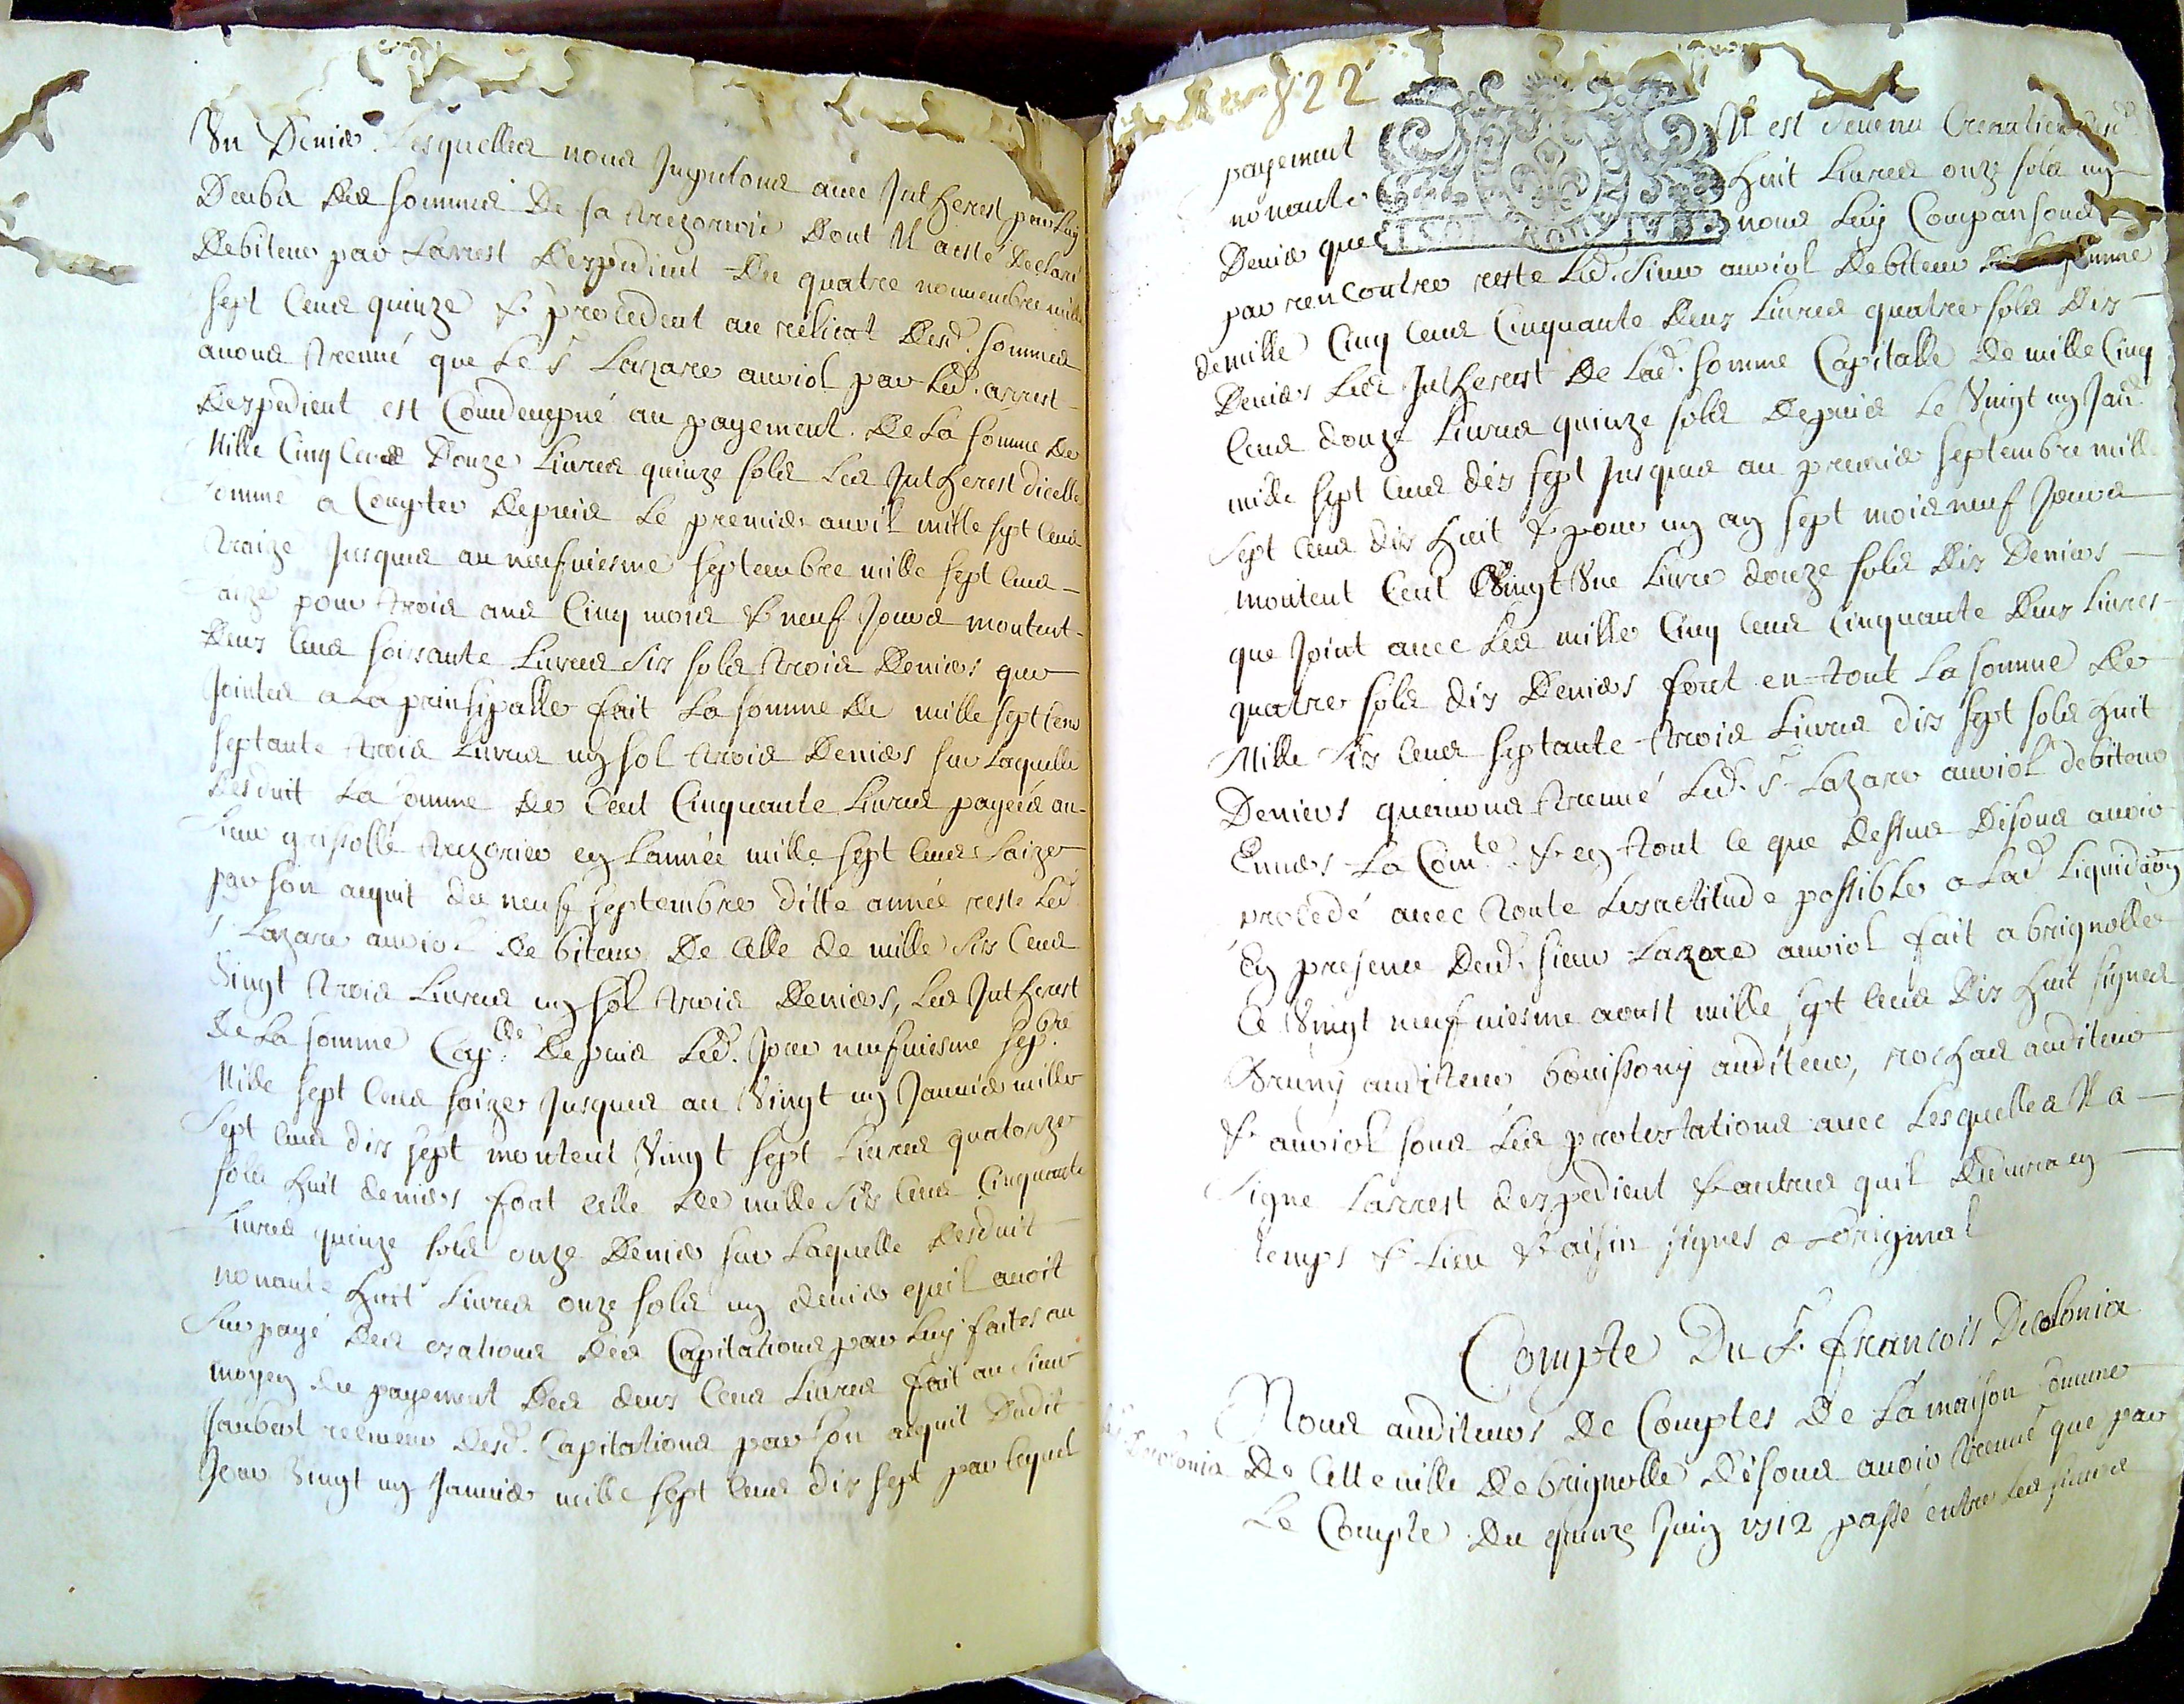 Un Denier Lesquelles nous Imputons avec Intherest par luy
Deubs Des sommes De sa trezorerie Dont Il a esté Declaré
Debiteur par Larrest Despedient Du quatre novembre mille
sept Cens quinze & procedent au relicat Desd. sommes
avons treuvé que Le Sr Lazare auriol par Led. arrest
Despedient est Comdempné au payement De La somme De
Mille Cinq Cens Douze Livres quinze sols Les Intherest dicelle
somme a Compter Depuis Le premier avril mille sept Cens
traize Jusques au neufviesme septembre mille sept Cens
saize pour trois ans Cinq mois & neuf Jours montent
Deux Cens soixante Livres six sols trois Deniers que
Jointes a La prinsipalle fait La somme De mille sept Cens
septante trois Livres un sol trois Deniers sur Laquelle
Desduit La somme De Cent Cinquante Livres payées au
sieur grisolle trezorier en Lannée mille sept Cens saize
par son aquit du neuf septembre ditte année reste Led.
Sr Lazare auriol Debiteur De Celle de mille six Cens
Vingt trois Livres un sol trois Deniers, Les Intherest
De La somme Cap.lle Depuis Led. Jour neufviesme sep.bre
Mille sept Cens saize Jusques au Vingt un Janvier mille
sept Cens dix sept montent Vingt sept Livres quatorze
sols huit deniers font Celle De mille six Cens Cinquante
Livres quinze sols onze Deniers sur Laquelle Desduit
nonante huit Livres onze sols un denier quil avoit
surpayé Des exations Des Capitations par Luy faites au
moyen du payement Des deux Cens Livres fait au sieur
Jaubert receveur Desd. Capitations par son aquit Dudit
Jour Vingt un Janvier mille sept Cens dix sept par Lequel
822
payement Il est devenu Creantier desd.
nonante huit Livres onze sols un
Denier que nous Luy Compansons
par rencontre reste Led. Sieur auriol Debiteur De La somme
de mille Cinq Cens Cinquante Deux Livres quatre sols Dix
Deniers Les Intherest De Lad. somme Capitalle de mille Cinq
Cens douze Livres quinze sols Depuis Le Vingt un Jan.
mille sept Cens dix sept Jusques au premier septembre mille
sept Cens dix huit & pour un an sept mois neuf Jours
montent Cent Vingt Une Livre douze sols Dix Deniers
que Joint avec Les mille Cinq Cens Cinquante Deux Livres
quatre sols dix Deniers font en tout La somme De
Mille Six Cens septante trois Livres dix sept sols huit
Deniers quavons treuvé Led. Sr Lazare auriol debiteur
Envers La Com.té & en tout Ce que Dessus Disons avoir
procedé avec toute Lexactitude possible a Lad. Liquidaon
En presence Dud. sieur Lazare auriol fait a brignolle
Ce Vingt neufviesme aoust mille sept Cens Dix huit signes
Bruny auditeur bouissony auditeur, rochas auditeur
& auriol sous Les protestations avec Lesquelles Il a
signe Larrest despedient & autres quil Deduira en
temps & Lieu & aisin signes a Loriginal
Compte Du Sr. francois Decolonia
Decolonia
Nous auditeurs De Comptes De La maison Comune
De Cette ville De brignolle Disons avoir treuvé que par
Le Compte Du quinze Juin 1712 passé entre Les sieurs